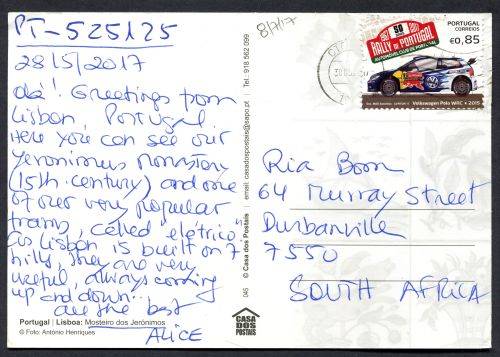 PT-525125
28/5/2017
Olá! Greetings from
Lisbon, Portugal
Here you can see our
Jeronimus monastery
(15th century) and one
of our very popular
trams, called "eletrico".
As Lisbon is built on 7
hills, they are very
useful, always coming
up and down...
all the best
ALICE
Portugal | Lisboa: Mosteiro dos Jerónimos
© Foto: António Henriques
045 © Casa dos Postais e-mail: casadospostais@sapo.pt Tel. 918 562 099
CASA
DOS
POSTAIS
8/7/17
1967 50 2017
RALLY DE PORTUGAL
AUTOMÓVEL CLUB DE PORTUGAL
PORTUGAL
CORREIOS
€0,85
Volkswagen Polo WRC • 2015
Ria Boom
64 Murray Street
Durbanville
7550
SOUTH AFRICA